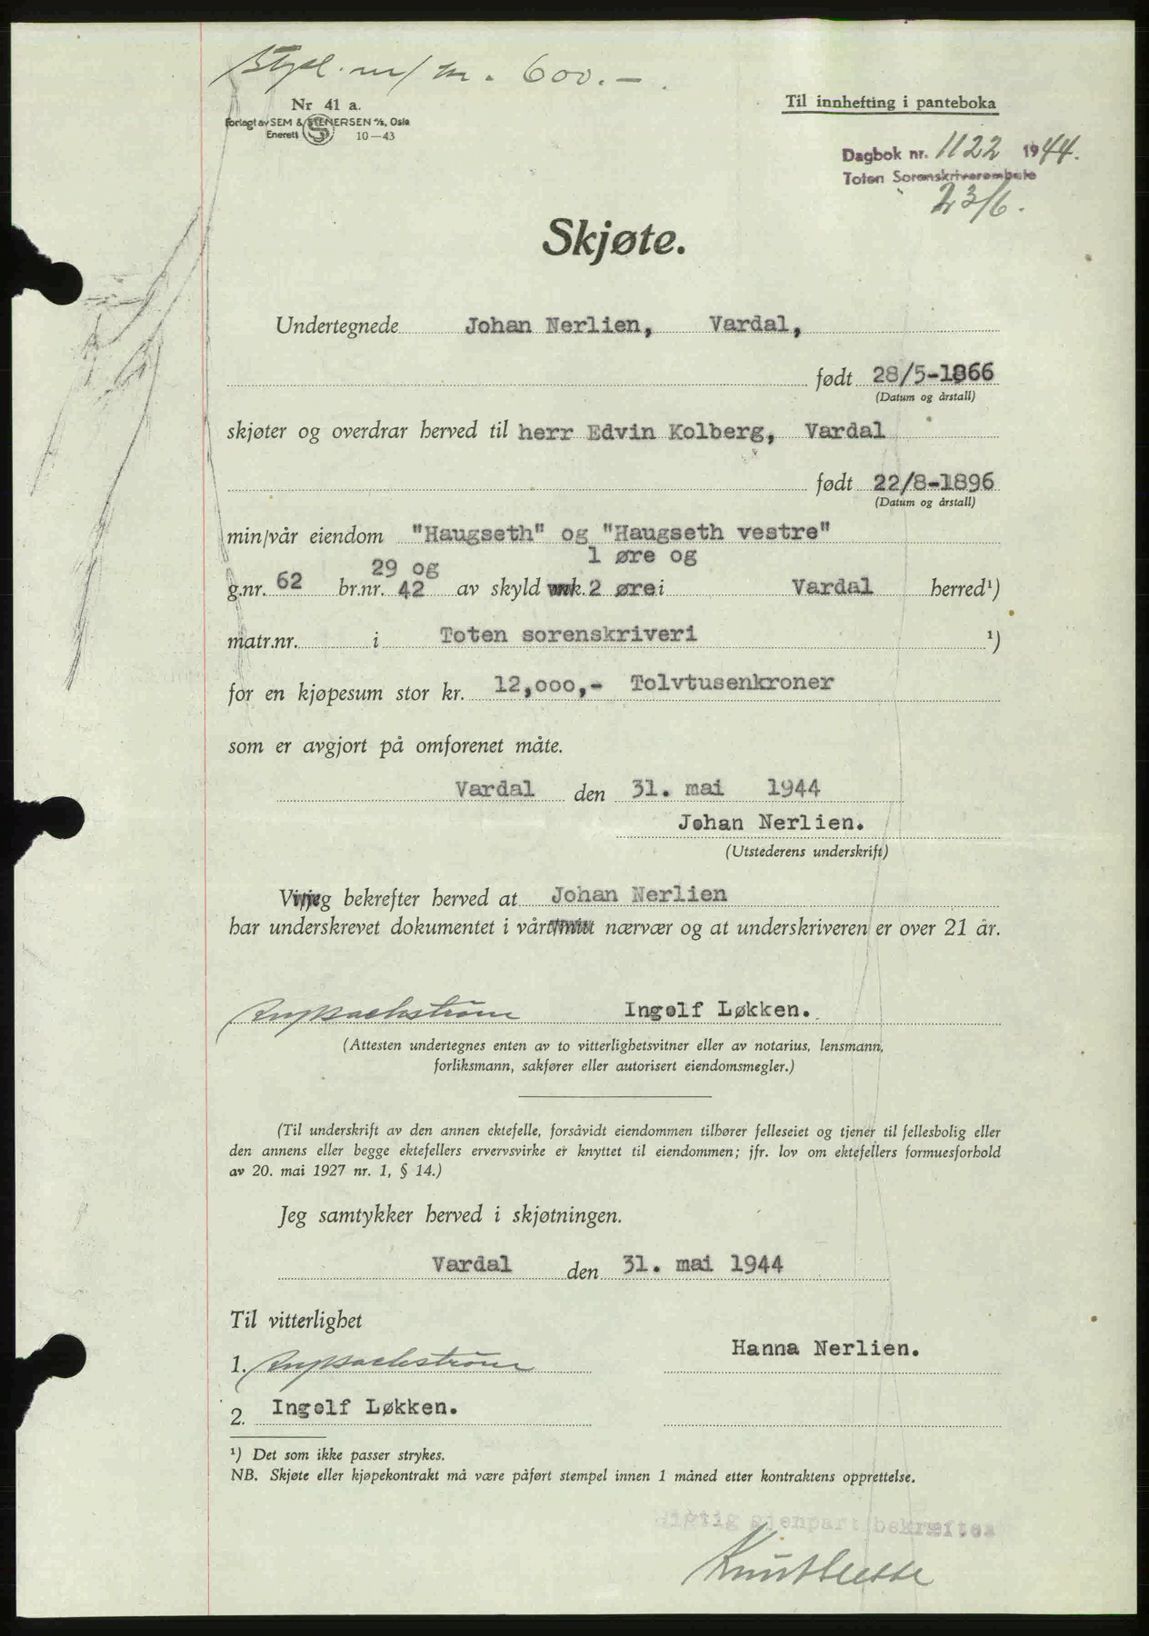 Stpl. m/ kr. 600.-.
Nr 41 a.
Forlagt av SEM & STENERSEN A/S, Oslo
Enerett 10—43
Til innhefting i panteboka
Dagbok nr. 1122 1944.
Toten Sorenskriverembete
23/6.
Skjøte.
Undertegnede Johan Nerlien, Vardal,
født 28/5-1866
(Datum og årstall)
skjøter og overdrar herved til herr Edvin Kolberg, Vardal
født 22/8-1896
(Datum og årstall)
min/vår eiendom "Haugseth" og "Haugseth vestre"
29 og 1 øre og
g.nr. 62 br.nr. 42 av skyld mk. 2 øre i Vardal herred¹)
matr.nr. i Toten sorenskriveri ¹)
for en kjøpesum stor kr. 12,000,- Tolvtusenkroner
som er avgjort på omforenet måte.
Vardal den 31. mai 1944
Johan Nerlien.
(Utstederens underskrift)
Vi/jeg bekrefter herved at Johan Nerlien
har underskrevet dokumentet i vårt/mitt nærvær og at underskriveren er over 21 år.
Ingolf Løkken.
(Attesten undertegnes enten av to vitterlighetsvitner eller av notarius, lensmann,
forliksmann, sakfører eller autorisert eiendomsmegler.)
(Til underskrift av den annen ektefelle, forsåvidt eiendommen tilhører felleseiet og tjener til fellesbolig eller
den annens eller begge ektefellers ervervsvirke er knyttet til eiendommen; jfr. lov om ektefellers formuesforhold
av 20. mai 1927 nr. 1, § 14.)
Jeg samtykker herved i skjøtningen.
Vardal den 31. mai 1944
Til vitterlighet
Hanna Nerlien.
1.
2. Ingolf Løkken.
¹) Det som ikke passer strykes.
NB. Skjøte eller kjøpekontrakt må være påført stempel innen 1 måned etter kontraktens opprettelse.
Rigtig gjenpart bekreftes